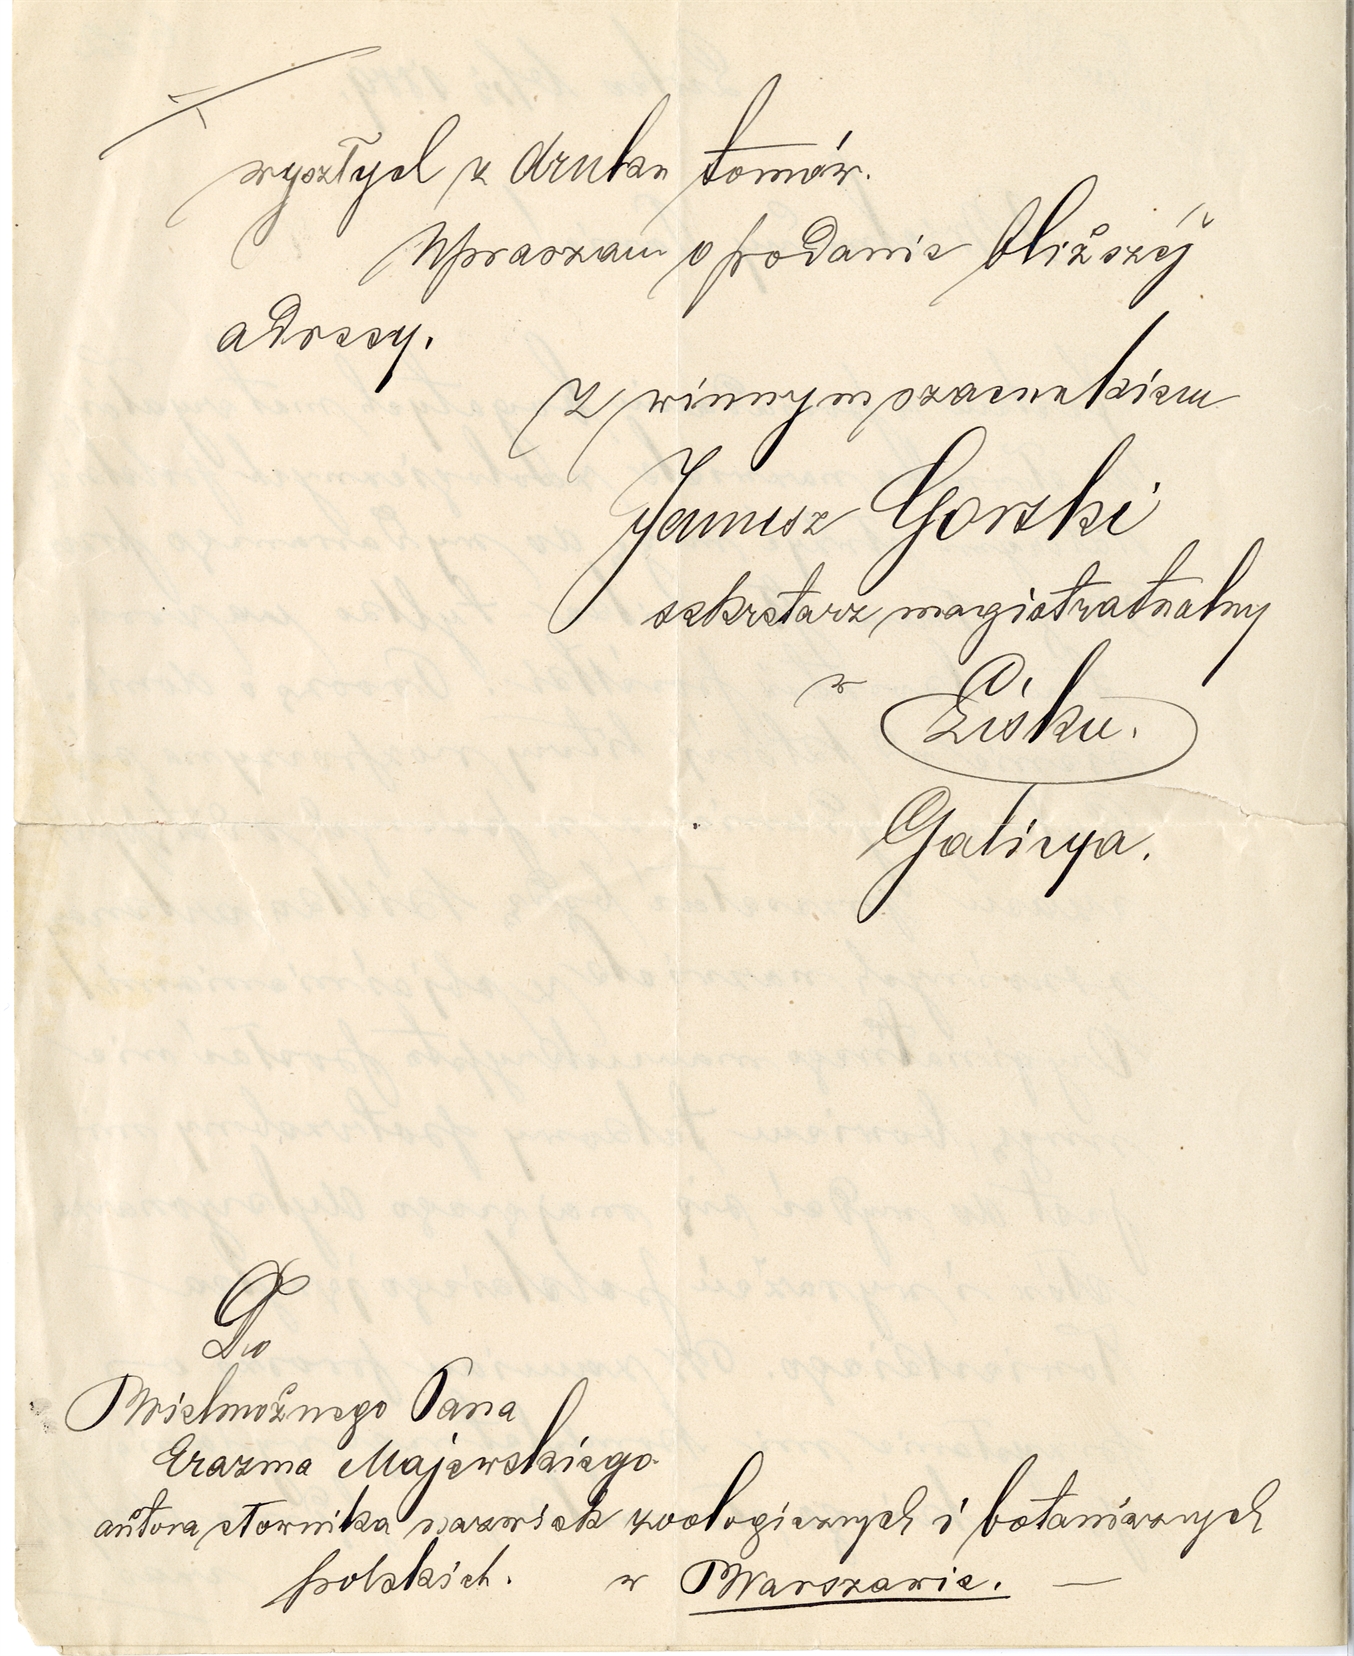 wyszłych z druku tomów.
Upraszam o podanie bliższéj
adresy.
Z winnym szacunkiem
Janusz Gorski
sekretarz magistratualny
w Lisku.
Galicya.
Do
Wielmożnego Pana
Erazma Majewskiego
autora słownika nazwisk zoologicznych i botanicznych
polskich. w Warszawie. —